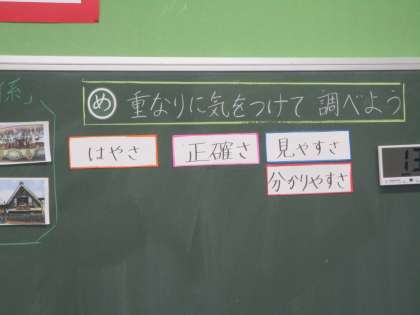 め 重なりに気をつけて 調べよう
係」
はやさ
正確さ
見やすさ
分かりやすさ
13